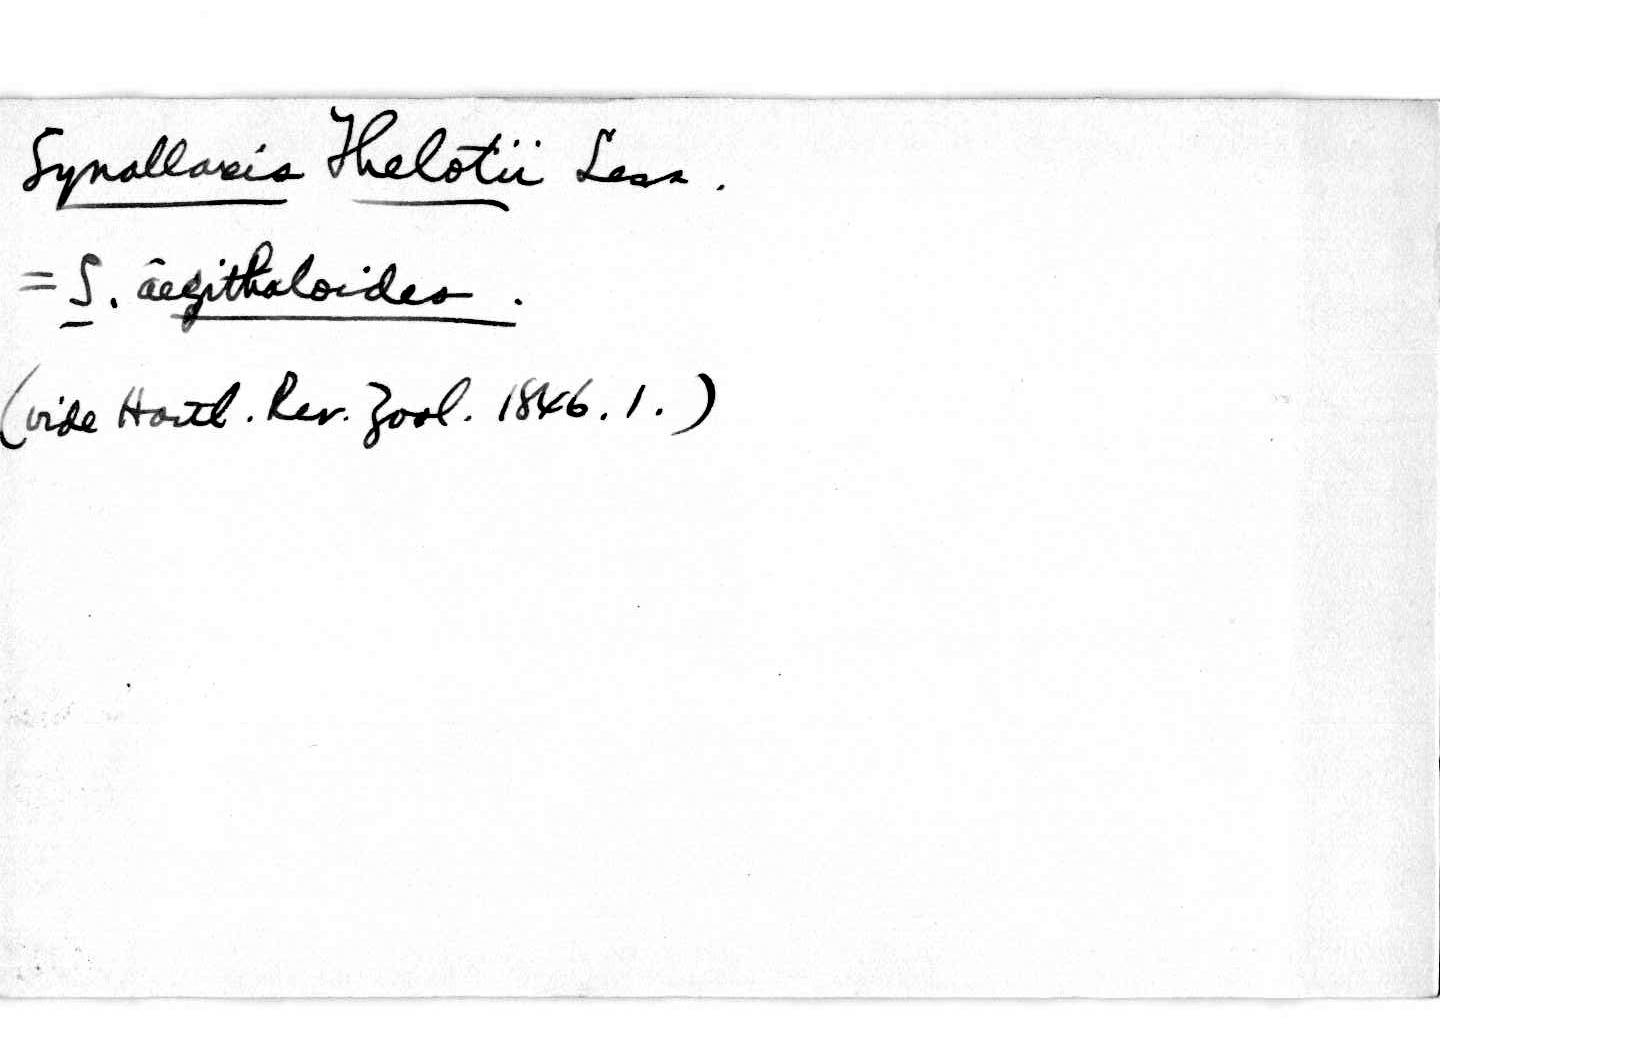 Synallaxis Thelotii Less.
= S. aegithaloides.
(vide Hartl. Rev. Zool. 1846. 1.)